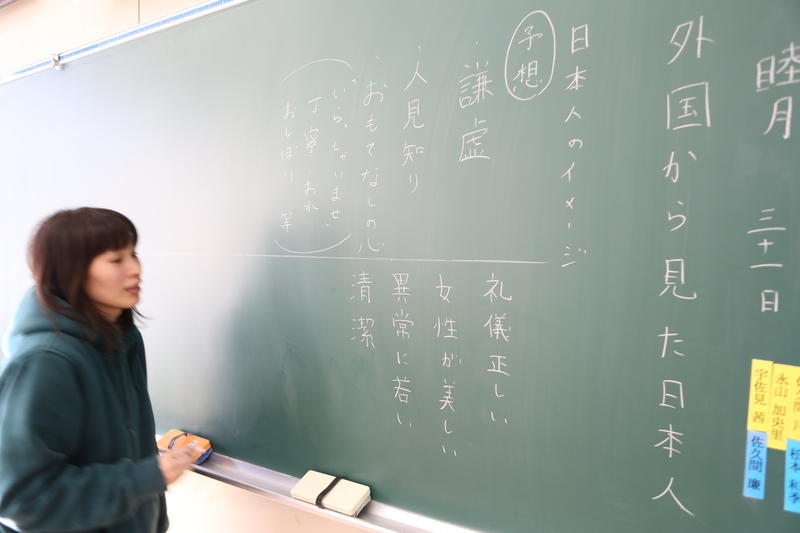 睦月
三十一日
外国から見た日本人
日本人のイメージ
予想
・謙虚
・人見知り
・おもてなしの心
“いらっしゃいませ”
丁寧・お礼
おしぼり 等
礼儀正しい
女性が美しい
異常に若い
清潔
永山 加央里
宇佐見 茜
松本 和季
佐久間 廉